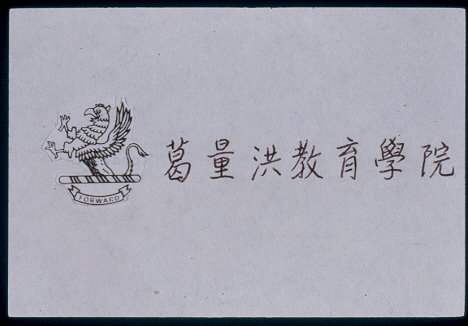 葛量洪教育學院
FORWARD